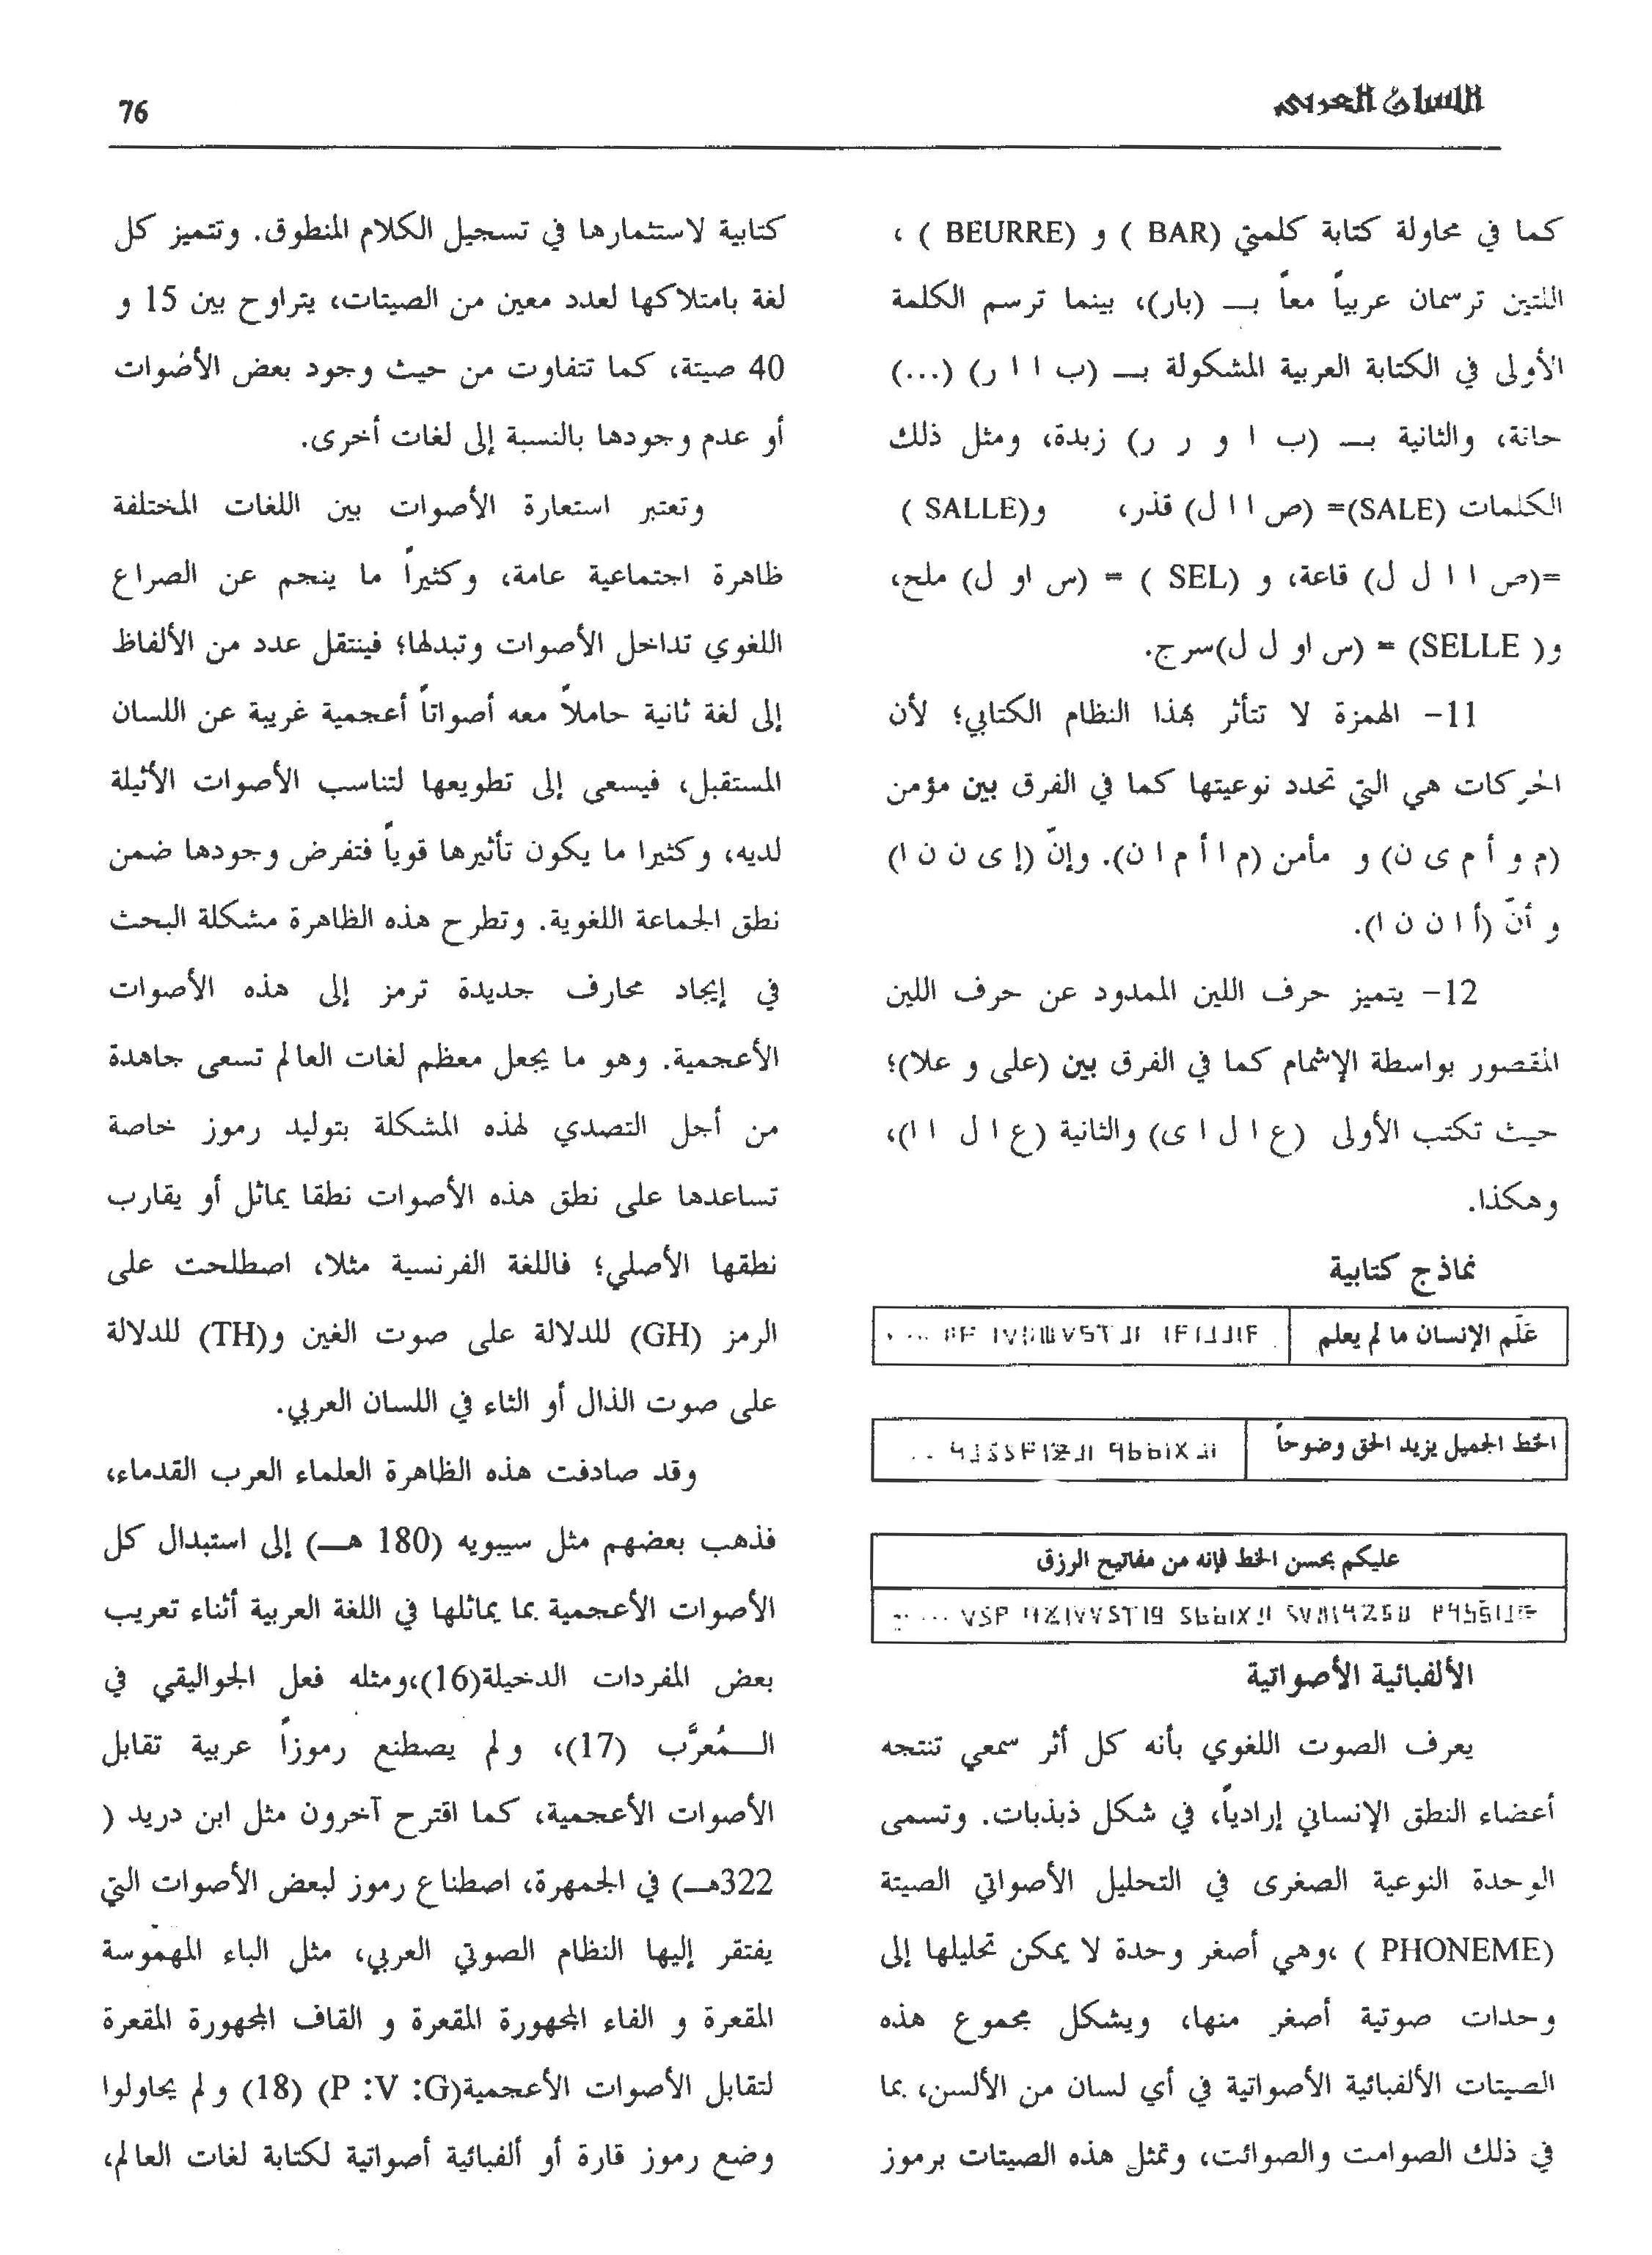 اللسان العربي
76
كما في محاولة كتابة كلمتي (BAR ) و (BEURRE ) ،
اللتين ترسمان عربياً معاً بـــ (بار)، بينما ترسم الكلمة
الأولى في الكتابة العربية المشكولة بـــ (ب ا ا ر) (...)
حانة، والثانية بـــ (ب ا و ر ر) زبدة، ومثل ذلك
الكلمات (SALE)= (ص ا ا ل) قذر، و(SALLE )
=(ص ا ا ل ل) قاعة، و (SEL ) = (س او ل) ملح،
و( SELLE) = (س او ل ل)سرج.
11- الهمزة لا تتأثر بهذا النظام الكتابي؛ لأن
الحركات هي التي تحدد نوعيتها كما في الفرق بين مؤمن
(م و أ م ى ن) و مأمن (م ا أ م ا ن). وإنّ (إ ى ن ن ا)
و أنّ (أ ا ن ن ا).
12- يتميز حرف اللين الممدود عن حرف اللين
المقصور بواسطة الإشمام كما في الفرق بين (على و علا)؛
حيث تكتب الأولى (ع ا ل ا ى) والثانية (ع ا ل ا ا)،
وهكذا.
نماذج كتابية
علّم الإنسان ما لم يعلم
الخط الجميل يزيد الحق وضوحاً
عليكم بحسن الخط فإنه من مفاتيح الرزق
الألفبائية الأصواتية
يعرف الصوت اللغوي بأنه كل أثر سمعي تنتجه
أعضاء النطق الإنساني إرادياً، في شكل ذبذبات. وتسمى
الوحدة النوعية الصغرى في التحليل الأصواتي الصيتة
(PHONEME ) ،وهي أصغر وحدة لا يمكن تحليلها إلى
وحدات صوتية أصغر منها، ويشكل مجموع هذه
الصيتات الألفبائية الأصواتية في أي لسان من الألسن، بما
في ذلك الصوامت والصوائت، وتمثل هذه الصيتات برموز
كتابية لاستثمارها في تسجيل الكلام المنطوق. وتتميز كل
لغة بامتلاكها لعدد معين من الصيتات، يتراوح بين 15 و
40 صيتة، كما تتفاوت من حيث وجود بعض الأصوات
أو عدم وجودها بالنسبة إلى لغات أخرى.
وتعتبر استعارة الأصوات بين اللغات المختلفة
ظاهرة اجتماعية عامة، وكثيراً ما ينجم عن الصراع
اللغوي تداخل الأصوات وتبدلها؛ فينتقل عدد من الألفاظ
إلى لغة ثانية حاملاً معه أصواتاً أعجمية غريبة عن اللسان
المستقبل، فيسعى إلى تطويعها لتناسب الأصوات الأثيلة
لديه، وكثيرا ما يكون تأثيرها قوياً فتفرض وجودها ضمن
نطق الجماعة اللغوية. وتطرح هذه الظاهرة مشكلة البحث
في إيجاد محارف جديدة ترمز إلى هذه الأصوات
الأعجمية. وهو ما يجعل معظم لغات العالم تسعى جاهدة
من أجل التصدي لهذه المشكلة بتوليد رموز خاصة
تساعدها على نطق هذه الأصوات نطقا يماثل أو يقارب
نطقها الأصلي؛ فاللغة الفرنسية مثلا، اصطلحت على
الرمز (GH) للدلالة على صوت الغين و(TH) للدلالة
على صوت الذال أو الثاء في اللسان العربي.
وقد صادفت هذه الظاهرة العلماء العرب القدماء،
فذهب بعضهم مثل سيبويه (180 هـــ) إلى استبدال كل
الأصوات الأعجمية بما يماثلها في اللغة العربية أثناء تعريب
بعض المفردات الدخيلة(16)،ومثله فعل الجواليقي في
الـــمُعرَّب (17)، ولم يصطنع رموزاً عربية تقابل
الأصوات الأعجمية، كما اقترح آخرون مثل ابن دريد (
322هـــ) في الجمهرة، اصطناع رموز لبعض الأصوات التي
يفتقر إليها النظام الصوتي العربي، مثل الباء المهموسة
المقعرة و الفاء المجهورة المقعرة و القاف المجهورة المقعرة
لتقابل الأصوات الأعجمية(P :V :G) (18) ولم يحاولوا
وضع رموز قارة أو ألفبائية أصواتية لكتابة لغات العالم،